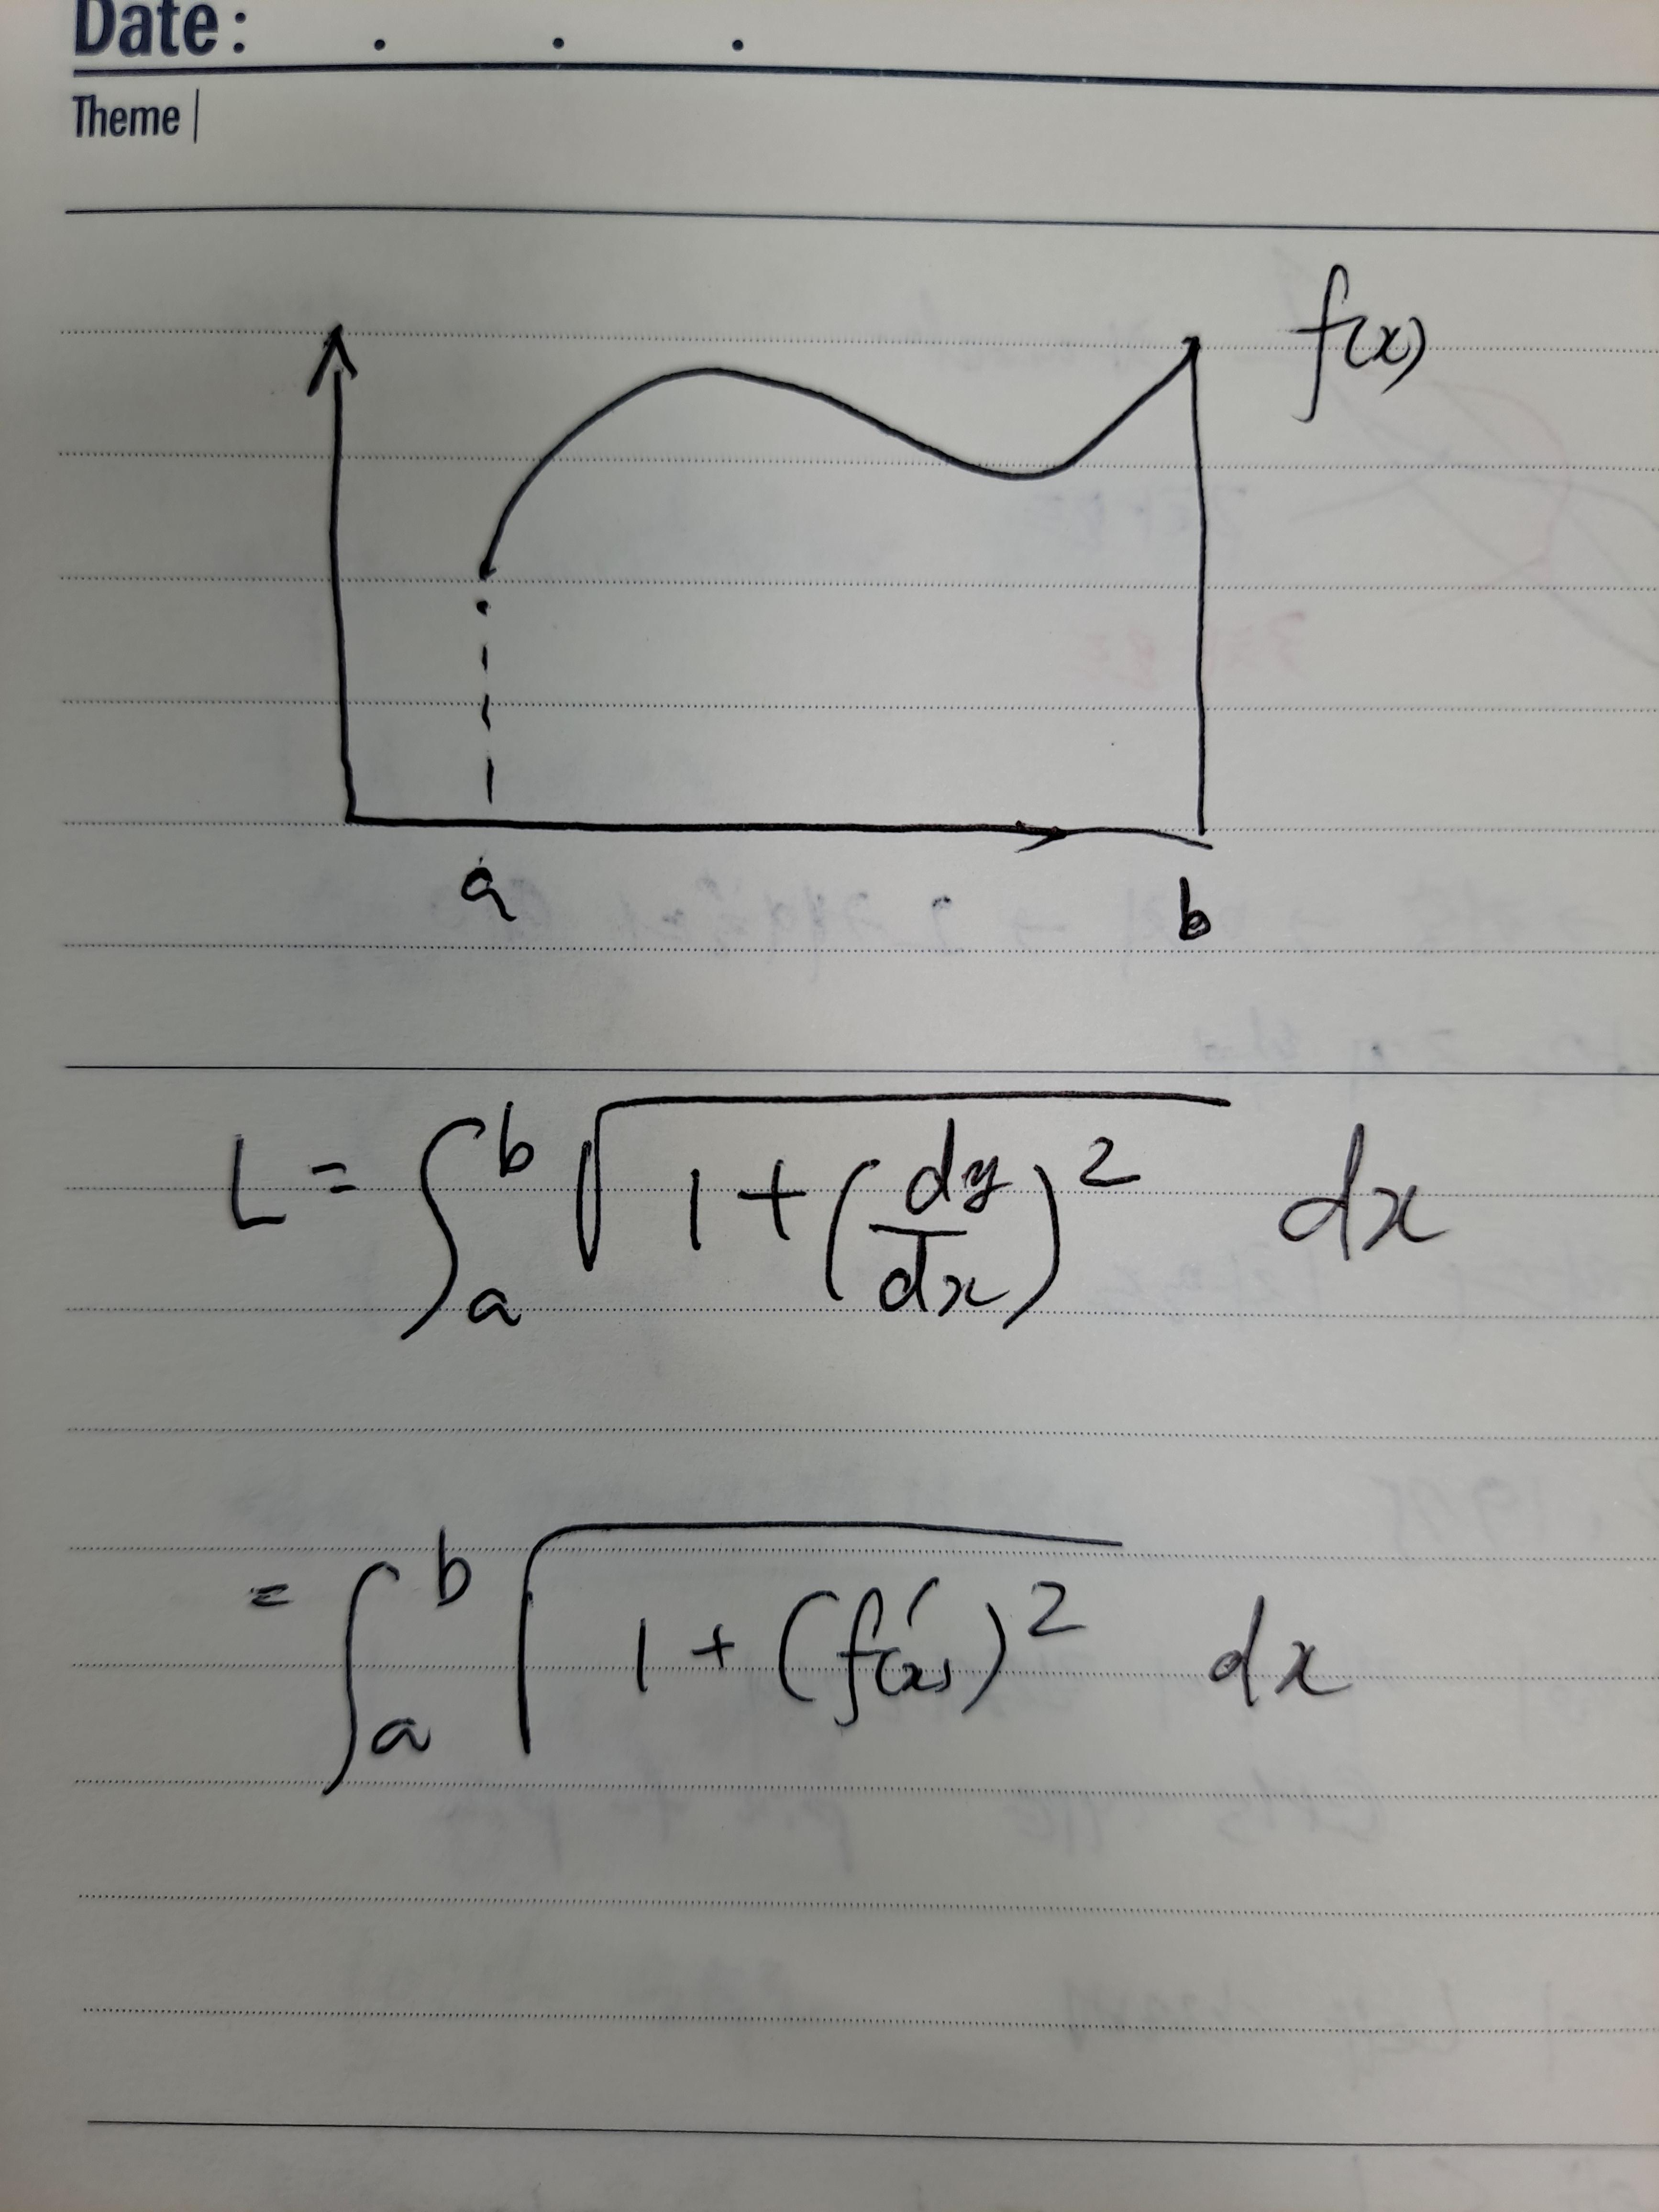 Date: . . .
Theme |
f(x)
a b
L = ∫_a^b √(1 + (dy/dx)^2) dx
= ∫_a^b √(1 + (f'(x))^2) dx